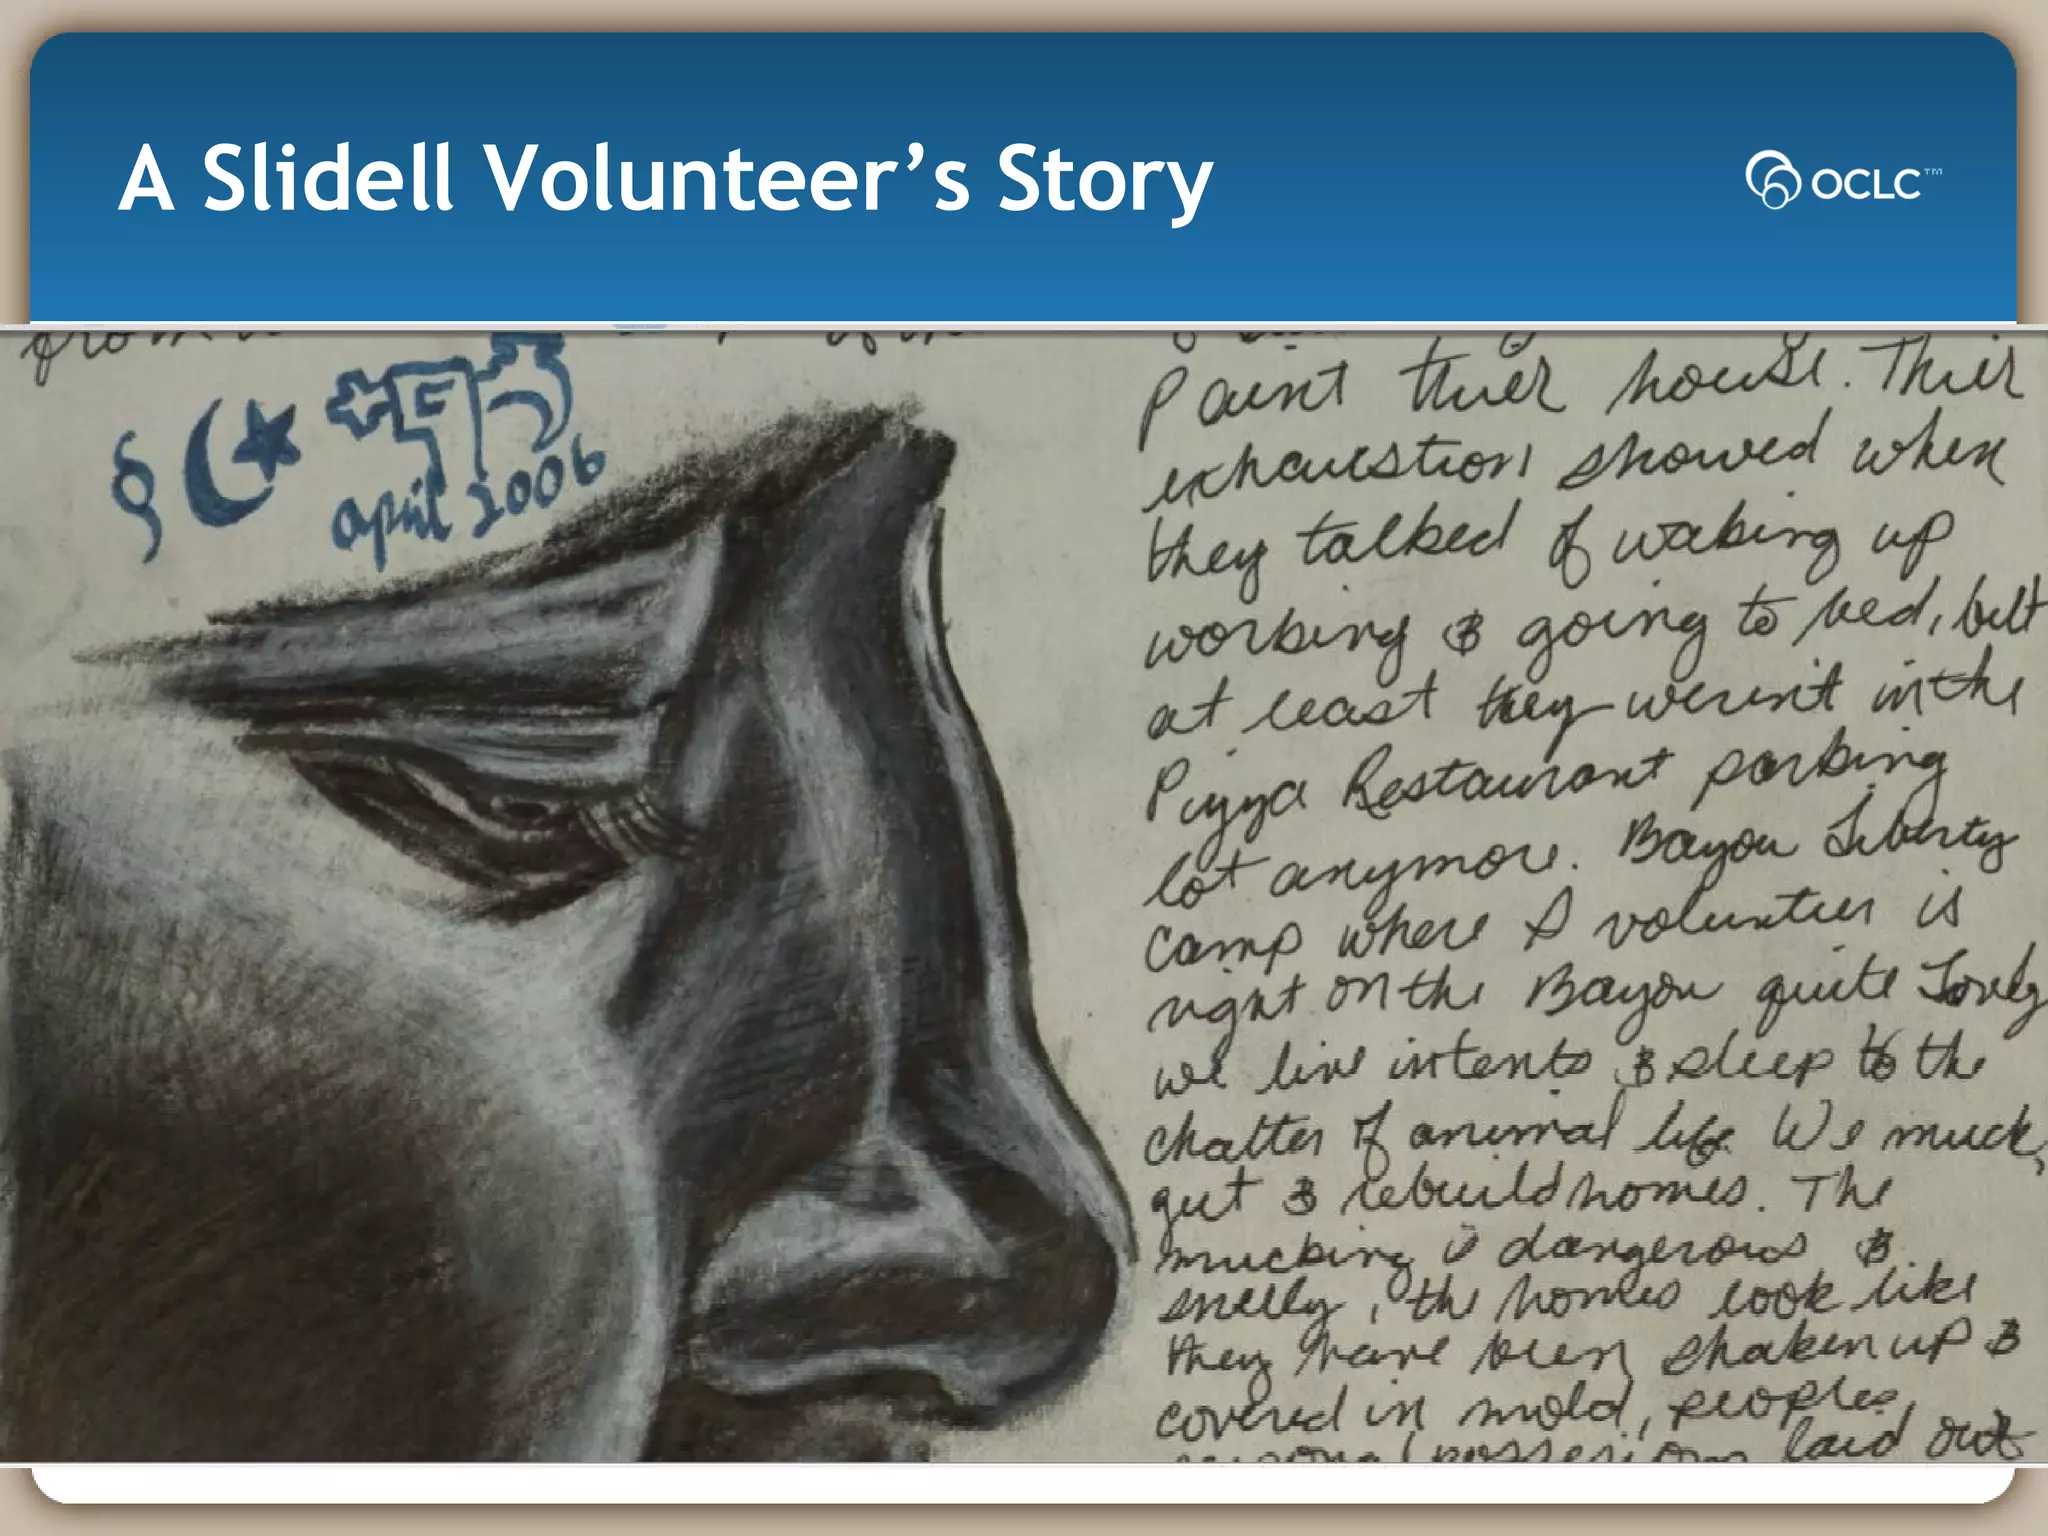 A Slidell Volunteer's Story
OCLC™
april 2006
Paint thier house. Thier
exhaustion showed when
they talked of waking up
working & going to bed, but
at least they weren't in the
Pizza Restaurant parking
lot anymore. Bayou Liberty
Camp where I volunteer is
right on the Bayou quite Lovely
we live in tents & sleep to the
chatter of animal life. We muck,
gut & rebuild homes. The
mucking is dangerous &
smelly, the homes look like
they have been shaken up &
covered in mold, peoples
personal possessions laid out